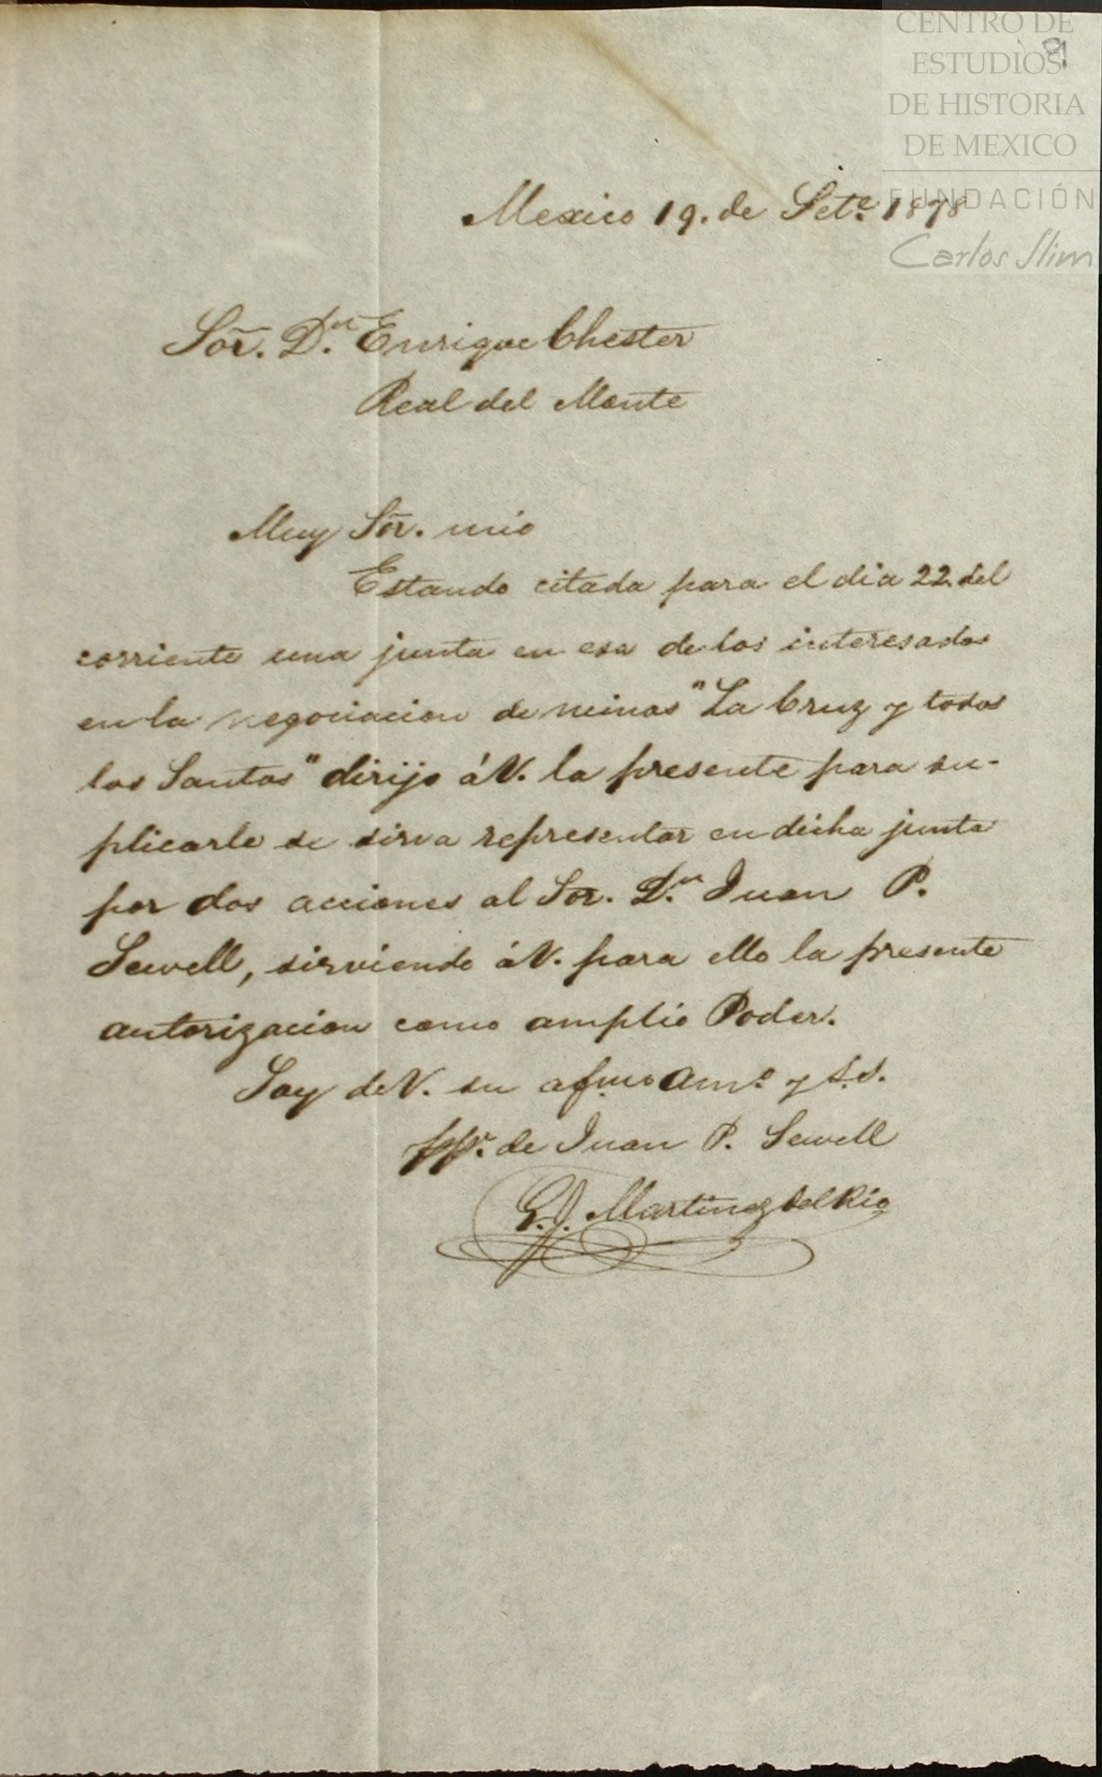 CENTRO DE
ESTUDIOS
DE HISTORIA
DE MEXICO
FUNDACIÓN
Carlos Slim
Mexico 19. de Set.e 1878
Sor. D.n Enrique Chester
Real del Monte
Muy Sor. mio
Estando citada para el dia 22. del
corriente una junta en esa de los interesados
en la negociacion de minas "La Cruz y todos
los Santos" dirijo á V. la presente para su-
plicarle se sirva representar en dicha junta
por dos acciones al Sor. D.n Juan P.
Sewell, sirviendo á V. para ello la presente
autorizacion como amplio Poder.
Soy de V. su afmo am.o y S.S.
pp.r de Juan P. Sewell
G. J. Martinez del Rio